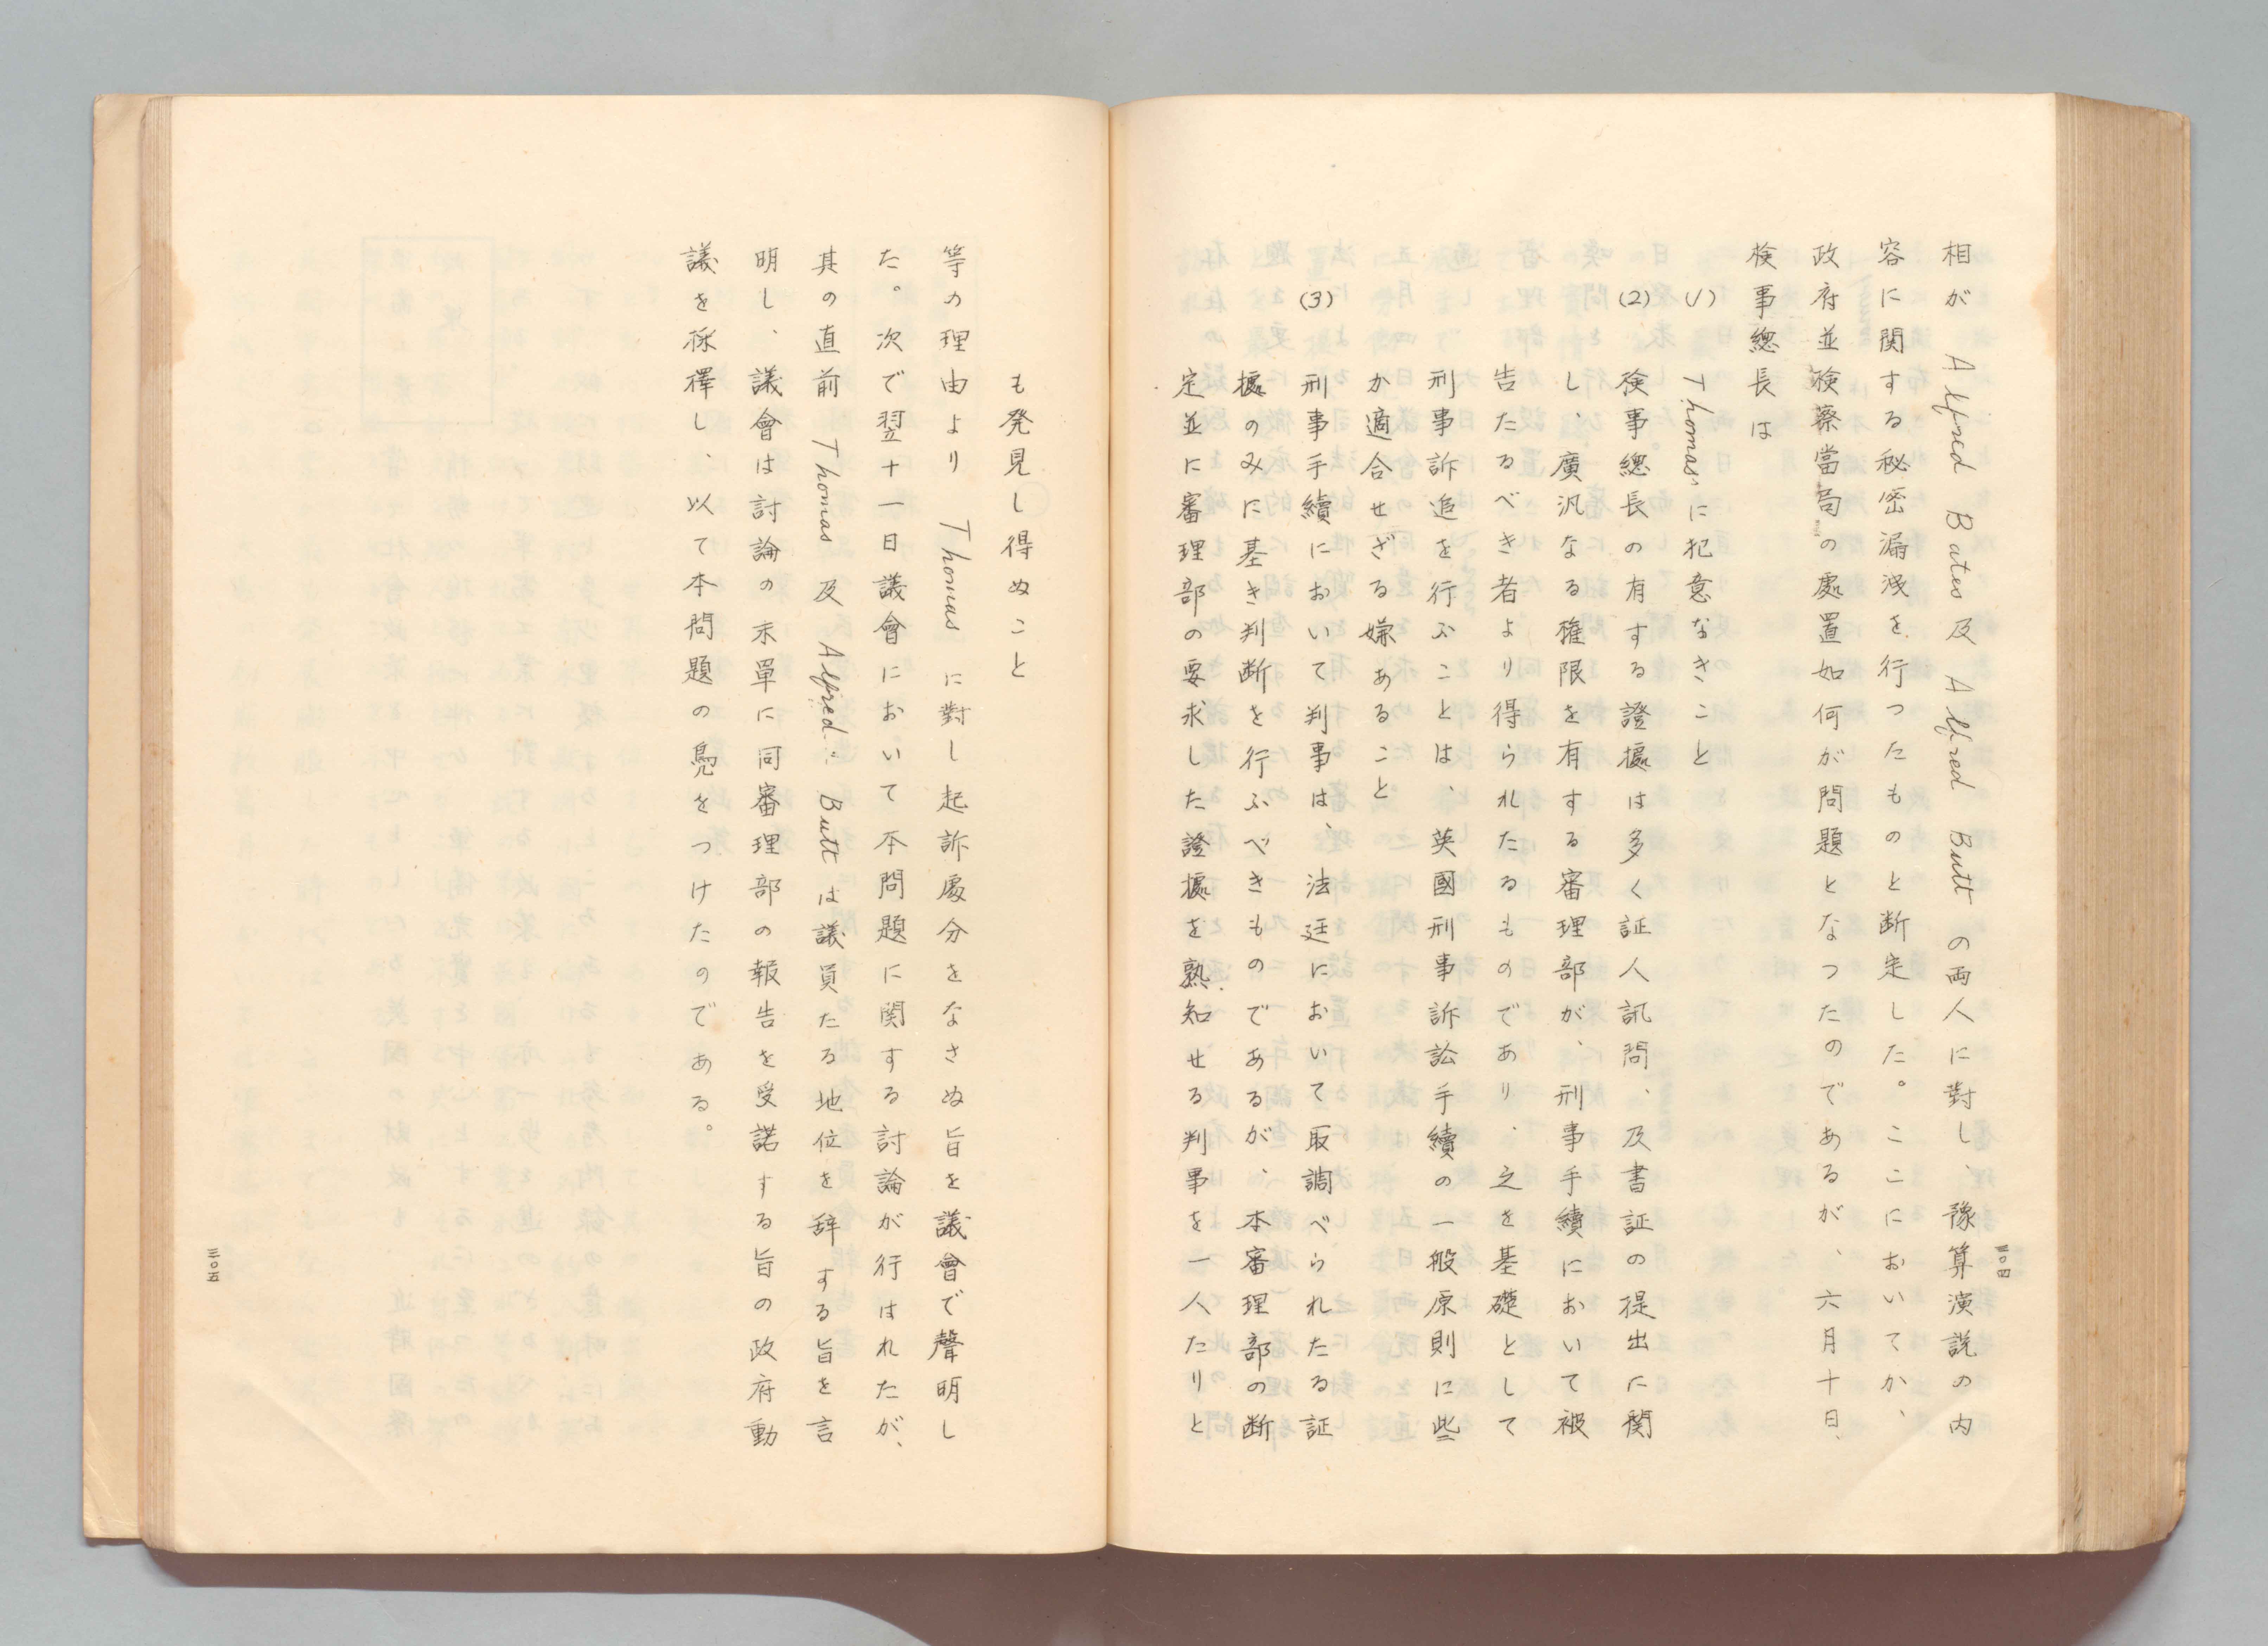 相が Alfred Bates 及 Alfred Butt の両人に對し、豫算演説の内
容に関する秘密漏洩を行つたものと断定した。ここにおいてか、
政府並檢察當局の處置如何が問題となつたのであるが、六月十日、
検事總長は
(1) Thomas に犯意なきこと
(2) 検事總長の有する證據は多く証人訊問、及書証の提出に関
し、廣汎なる権限を有する審理部が、刑事手續において被
告たるべき者より得られたるものであり、之を基礎として
刑事訴追を行ふことは、英國刑事訴訟手續の一般原則に些
か適合せざる嫌あること
(3) 刑事手續において判事は、法廷において取調べられたる証
據のみに基き判断を行ふべきものであるが、本審理部の断
定並に審理部の要求した證據を熟知せる判事を一人たりと
三〇四
も発見し得ぬこと
等の理由より Thomas に對し起訴處分をなさぬ旨を議會で聲明し
た。次で翌十一日議會において本問題に関する討論が行はれたが、
其の直前 Thomas 及 Alfred Butt は議員たる地位を辞する旨を言
明し、議會は討論の末單に同審理部の報告を受諾する旨の政府動
議を採擇し、以て本問題の鳧をつけたのである。
三〇五